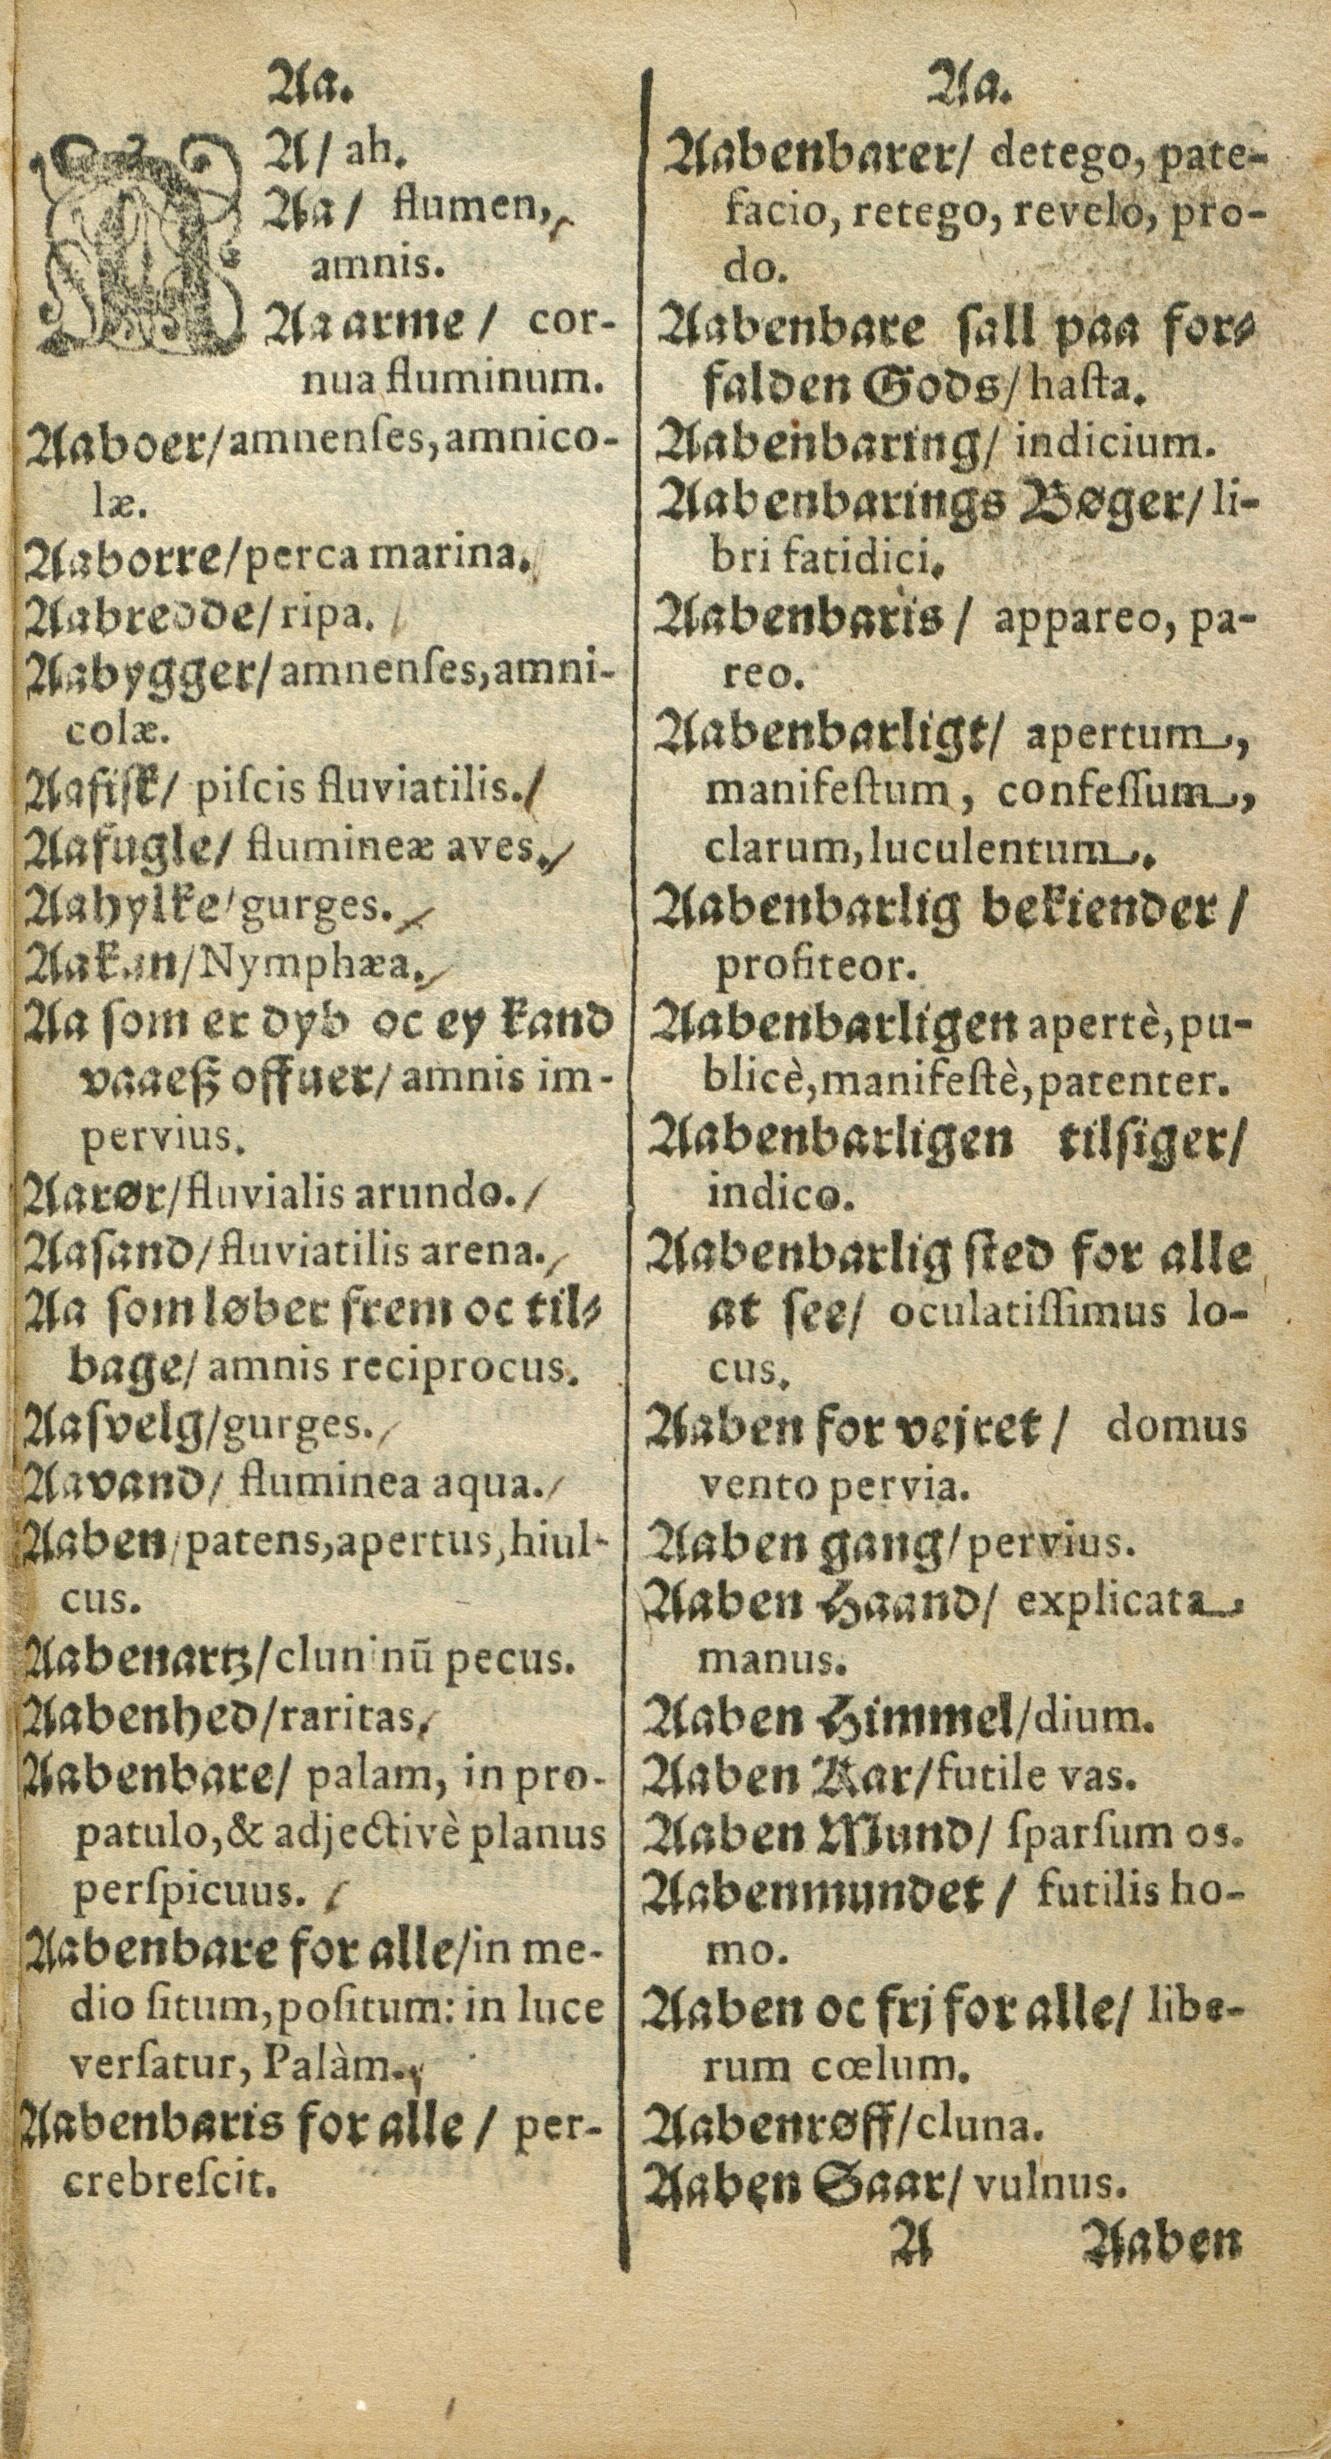 Aa.
A/ ah.
Aa/ flumen,
amnis.
Aa arme/ cor-
nua fluminum.
Aaboer/amnenſes,amnico-
læ.
Aaborre/perca marina.
Aabredde/ripa.
Aabygger/amnenſes,amni-
colæ.
Aafiſk/ piſcis fluviatilis.
Aafugle/ flumineæ aves.
Aahylke/gurges.
Aakan/Nymphæa.
Aa ſom er dyb oc ey kand
vaaeſz offuer/ amnis im-
pervius.
Aarør/fluvialis arundo.
Aaſand/fluviatilis arena.
Aa ſom løber frem oc til-
bage/ amnis reciprocus.
Aaſvelg/gurges.
Aavand/ fluminea aqua.
Aaben/patens,apertus,hiul-
cus.
Aabenartz/cluninū pecus.
Aabenhed/raritas.
Aabenbare/ palam, in pro-
patulo,& adjectivè planus
perſpicuus.
Aabenbare for alle/in me-
dio ſitum,poſitum: in luce
verſatur, Palàm.
Aabenbaris for alle/ per-
crebreſcit.
Aa.
Aabenbarer/ detego, pate-
facio, retego, revelo, pro-
do.
Aabenbare ſall paa for-
falden Gods/haſta.
Aabenbaring/ indicium.
Aabenbarings Bøger/ li-
bri fatidici.
Aabenbaris/ appareo, pa-
reo.
Aabenbarligt/ apertum,
manifeſtum, confeſſum,
clarum,luculentum.
Aabenbarlig bekiender/
profiteor.
Aabenbarligen apertè,pu-
blicè,manifeſtè,patenter.
Aabenbarligen tilſiger/
indico.
Aabenbarlig ſted for alle
at ſee/ oculatiſſimus lo-
cus.
Aaben for vejret/ domus
vento pervia.
Aaben gang/pervius.
Aaben Haand/ explicata
manus.
Aaben Himmel/dium.
Aaben Kar/futile vas.
Aaben Mund/ ſparſum os.
Aabenmundet/ futilis ho-
mo.
Aaben oc frj for alle/ libe-
rum cœlum.
Aabenrøff/cluna.
Aaben Saar/ vulnus.
A Aaben